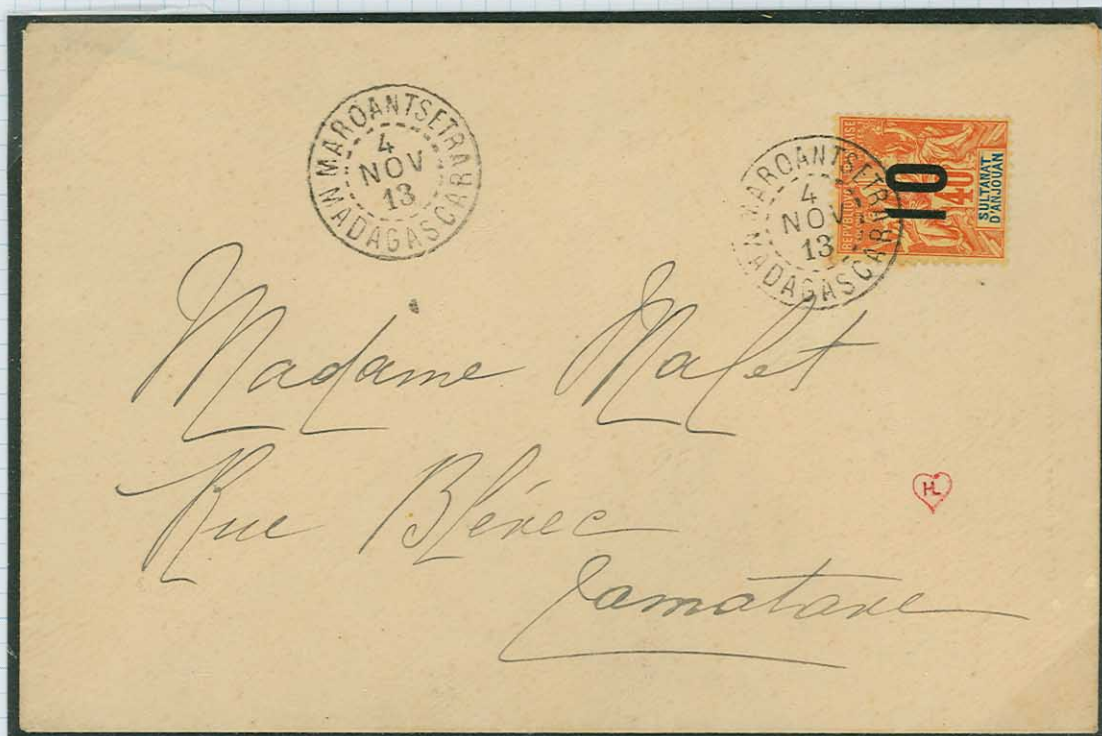 MAROANTSETRA
4
NOV
13
MADAGASCAR
MAROANTSETRA
4
NOV
13
MADAGASCAR
REPVBLIQVE FRANÇAISE
10
40
SULTANAT
D'ANJOUAN
Madame Malet
Rue Blévec
Tamatave
HL